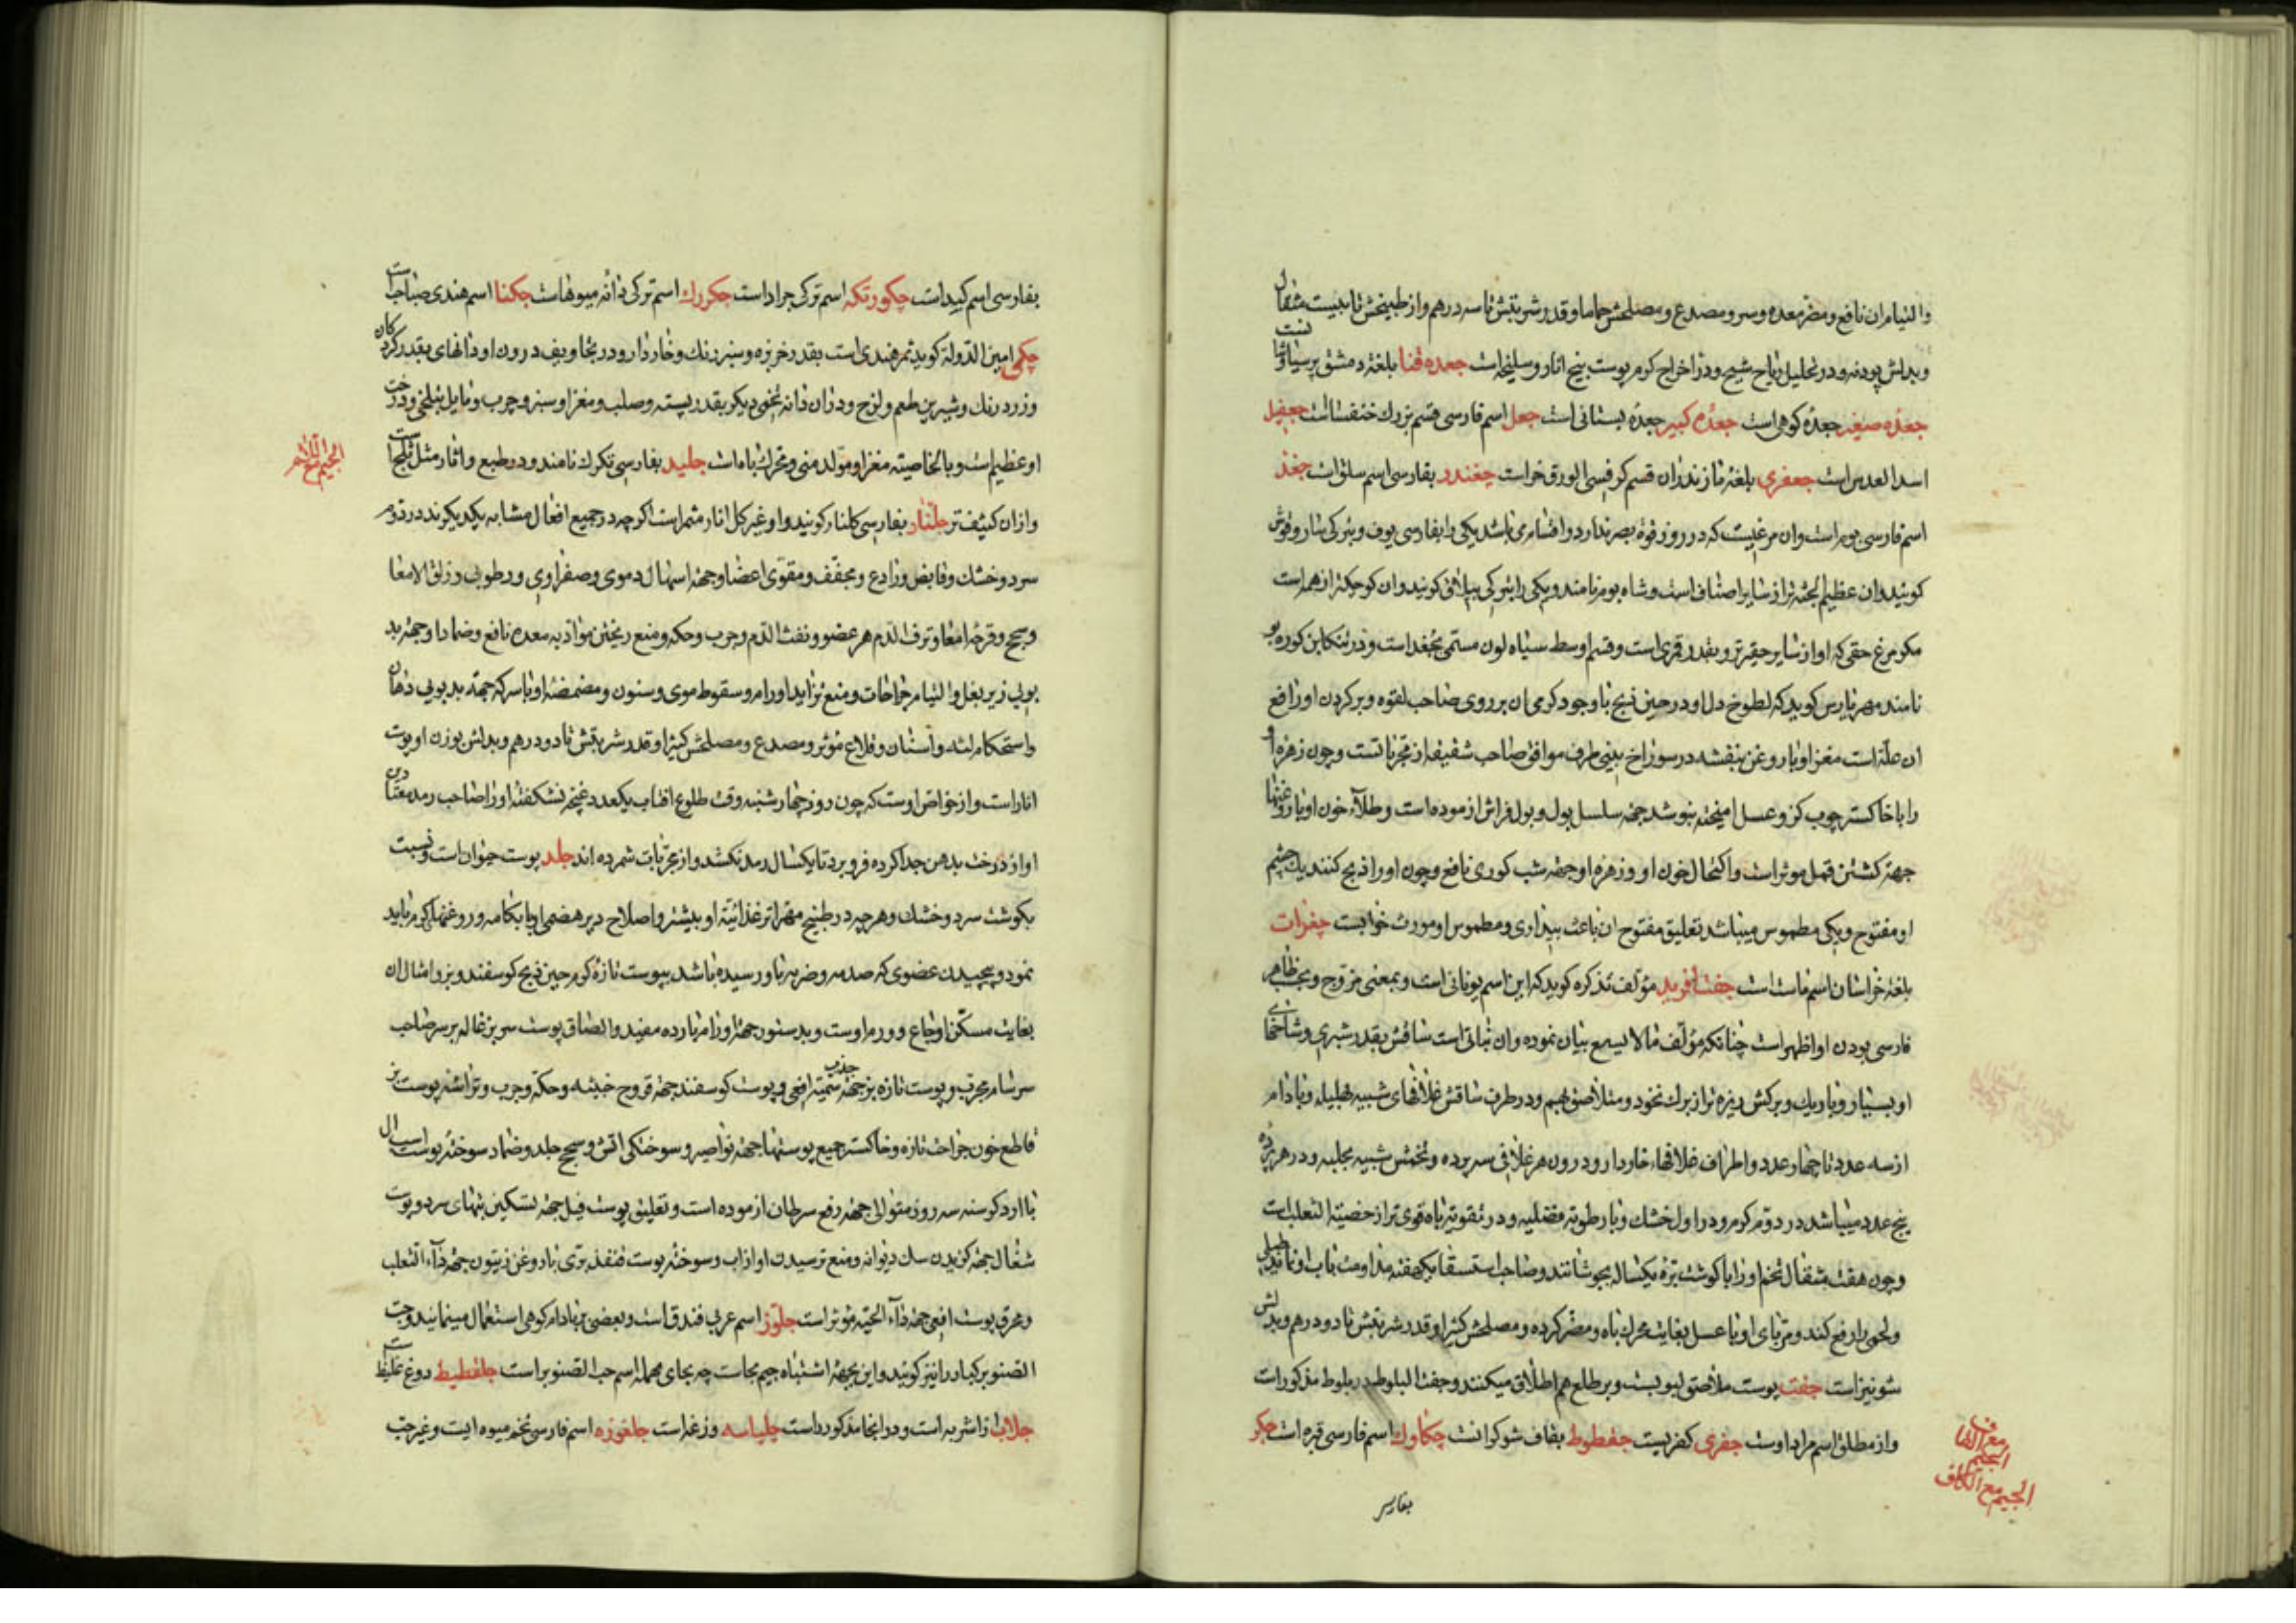 والتیام ان نافع و مضر معده و سر و مصدع و مصلحش حماما و قدر شربتش تا سه درهم و از طبیخش تا بیست مثقال
و بدلش پودنه و در تحلیل ریاح شیح و در اخراج کرم پوست بیخ انار و سلیخه است جعده قنا بلغة دمشق پرسیاوشان است
جعده صغیر جعدهٔ کوهی است جعده کبیر جعدهٔ بستانی است جعل اسم فارسی قسم بزرك خنفساست جعفیل
اسد العدس است جعفری بلغة مازندران قسم کرفس الورق خراست چغندر بفارسی اسم سلق است جغد
اسم فارسی بوم است و ان مرغیست که در روز قوة بصر ندارد و اقسام می باشد یکی را بفارسی بوف و بترکی ساروقوش
کویند و ان عظیم الجثه تر از سایر اصناف است و شاه بوم نامند و یکی را بترکی بیلاقی کویند و ان کوچکتر از همه است
مکر مرغ حقی که او از سایر حقیرتر و بقدر قمری است و قسم اوسط سیاه لون مسمی بجغد است و در تنکابن کوره بو
نامند مهر نارس کوید که لطوخ دل او در حین ذبح با وجود کرمی ان بر روی صاحب لقوه و بر کردن او رافع
ان علة است مغز او با روغن بنفشه در سوراخ بینی طرف موافق صاحب شقیقه از مجربانست و چون زهره او
را با خاکستر چوب کز و عسل امیخته بنوشد جهة سلسل بول و بول فراش ازموده است و طلاء خون او با روغنها
جهة کشتن قمل موثر است و اکتحال خون او و زهره او جهة شب کوری نافع و چون او را ذبح کنند یك چشم
او مفتوح و یکی مطموس میباشد تعلیق مفتوح ان باعث بیداری و مطموس او مورث خوابست جغرات
بلغة خراسان اسم ماست است جفت افرید مؤلف تذکره کوید که این اسم یونانی است و بمعنی مزوج و بحسب ظاهر
فارسی بودن او اظهر است چنانکه مؤلف ما لا یسع بیان نموده و ان نباتی است ساقش بقدر شبری و شاخهای
او بسیار و باریك و برکش ریزه تر از برك نخود و متلاصق بهم و در طرف ساقش غلافهای شبیه بهلیله و بادام
از سه عدد تا چهار عدد و اطراف غلافها خاردار و درون هر غلافی سه پرده و تخمش شبیه بحلبه و در هر پرده
پنج عدد میباشد در دوم کرم و در اول خشك و با رطوبة فضلیه و در تقویة باه قوی تر از خصیة الثعلب است
و چون هفت مثقال تخم او را با کوشت بزه یکساله بجوشانند و صاحب استسقا یکهفته مداومت نماید استسقاء طبلی
و لحمی را رفع کند و مربای او با عسل بغایت محرك باه و مضر کرده و مصلحش کثیرا و قدر شربتش تا دو درهم و بدلش
شونیز است جفت پوست ملاصق لبوبست و بر طلع هم اطلاق میکنند و جفت البلوط در بلوط مذکور است
و از مطلق اسم مراد اوست جفری کفریست جفطوط بقاف شوکرانست چکاوك اسم فارسی قبره است جکر
بفارسی
الجیم مع الفاء
الجیم مع الکاف
بفارسی اسم کبد است چکورتکه اسم ترکی جراد است جکررك اسم ترکی دانهٔ میوهاست جکنا اسم هندی صناب است
چکی امین الدوله کوید ثمر هندی است بقدر خربزه و سبز رنك و خاردار و در تجاویف درون او دانهای بقدر کردکان
و زرد رنك و شیرین طعم و لزج و در ان دانه تخمی دیکر بقدر پسته و صلب و مغز او سبز و چرب و مایل بتلخی و درخت
او عظیم است و بالخاصیته مغز او مولد منی و محرك باه است جلید بفارسی تکرك نامند و در طبع و اثار مثل ثلج است
و از ان کثیف تر جلنار بفارسی کلنار کویند و او غیر کل انار مثمر است اکرچه در جمیع افعال مشابه یکدیکرند در دوم
سرد و خشك و قابض و رادع و مجفف و مقوی اعضا و جهة اسهال دموی و صفراوی و رطوبی و زلق الامعا
و سحج و قرحهٔ امعا و نزف الدم هر عضو و نفث الدم و جرب و حکه و منع ریختن مواد به معده نافع و ضماد او جهة بد
بوبی زیر بغل و التیام جراحات و منع تزاید اورام و سقوط موی و سنون و مضمضهٔ او با سرکه جهة بدبوبی دهان
و استحکام لثه و اسنان و قلاع موثر و مصدع و مصلحش کثیرا و قدر شربتش تا دو درهم و بدلش بوزن او پوست
انار است و از خواص اوست که چون روز چهارشنبه وقت طلوع افتاب یکعدد غنچهٔ نشکفتهٔ او را صاحب رمد معتاد
او از درخت بدهن جدا کرده فرو برد تا یکسال رمد نکشد و از مجربات شمرده اند جلد پوست حیوان است و نسبت
بکوشت سرد و خشك و هر چه در طبیخ مهرا تر غذائیة او بیشتر و اصلاح دیر هضمی او با بکامه و روغنهای کرم باید
نمود و پیچیدن عضوی که صدمه و ضربه باو رسیده باشد بپوست تازهٔ کرم حین ذبح کوسفند و بز و امثال ان
بغایت مسکن اوجاع و ورم اوست و بدستور جهة اورام بارده مفید و الصاق پوست سر بزغاله بر سر صاحب
سرسام مجرب و پوست تازه بز جهة جذب سمیة افعی و پوست کوسفند جهة قروح خبیثه و حکه و جرب و تراشهٔ پوست بز
قاطع خون جراحت تازه و خاکستر جمیع پوستها جهة نواصیر و سوختکی اتش و سحج جلد و ضماد سوختهٔ پوست اسب ال
با ارد کرسنه سه روز متوالی جهة رفع سرطان ازموده است و تعلیق پوست فیل جهة تسکین تبهای سرد و پوست
شغال جهة کزیدن سك دیوانه و منع ترسیدن او از اب و سوختهٔ پوست قنفذ بری با روغن زیتون جهة داء الثعلب
و محرق پوست افعی جهة داء الحیة موثر است جلوز اسم عربی فندق است و بعضی بر بادام کوهی استعمال مینمایند و حب
الصنوبر کبار را نیز کویند و این بجهة اشتباه جیم بجاست چه بجای مهمله اسم حب الصنوبر است جلغطیط دوغ غلیظ است
جلاب از اشربه است و در انجا مذکور است چلپاسه وزغه است جلغوزه اسم فارسی تخم میوه ایست و غیر حب
الجیم مع اللام